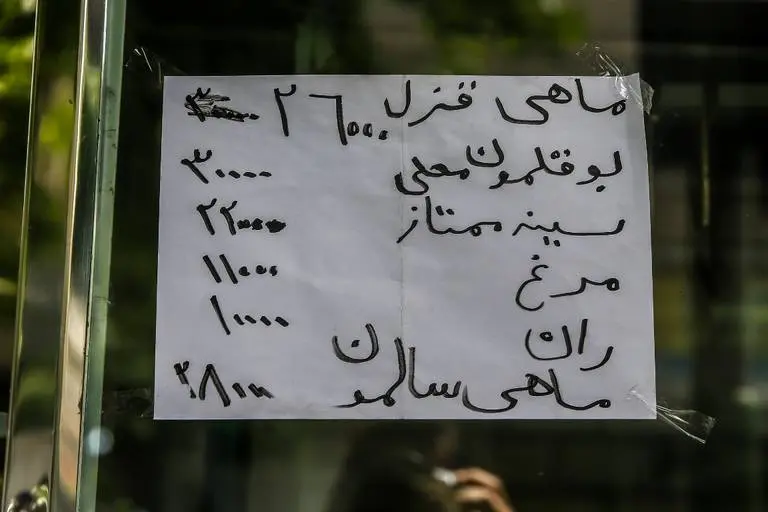 ماهی قزل ۲۶۰۰۰
بوقلمون محلی ۳۰۰۰۰
سینه ممتاز ۲۲۰۰۰
مرغ ۱۱۰۰۰
ران ۱۰۰۰۰
ماهی سالمون ۲۸۰۰۰